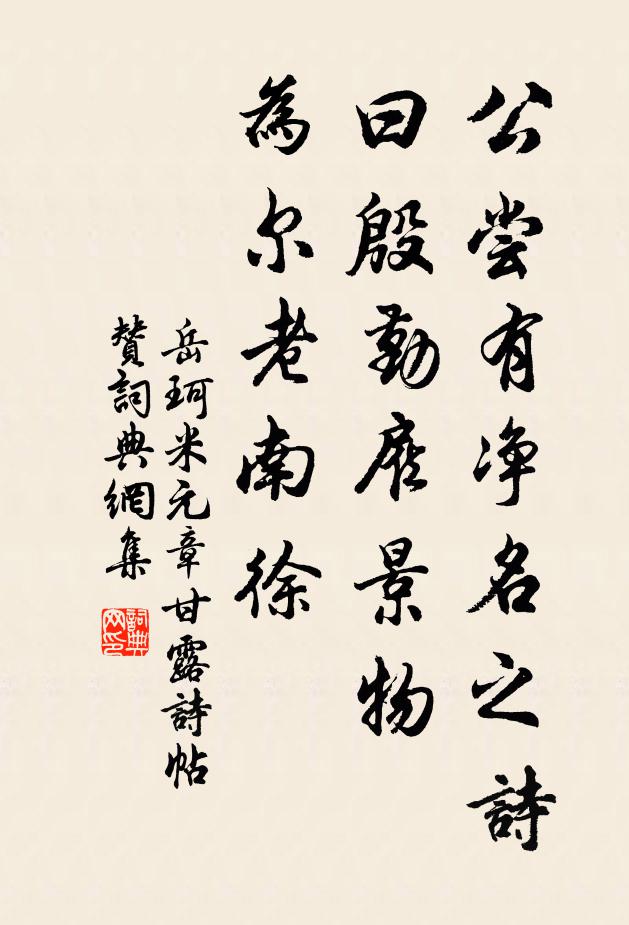 公尝有净名之詩
曰殷勤景物
為尔老南徐
岳珂米元章甘露詩帖
贊詞典網集
詞典
网印